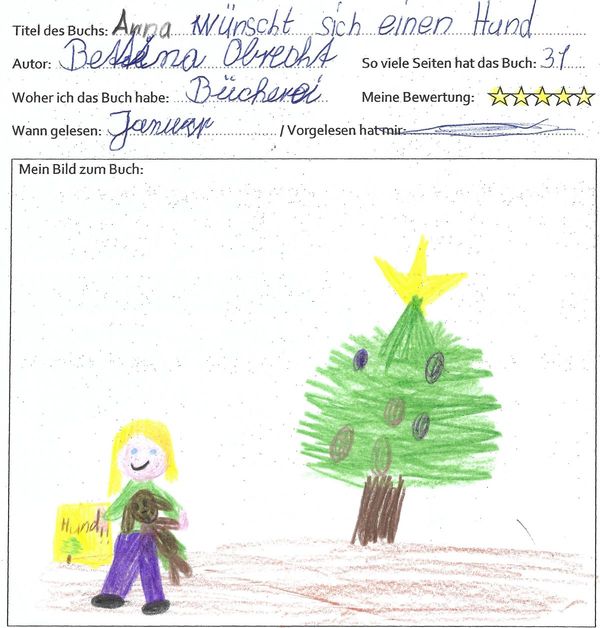 Titel des Buchs: Anna wünscht sich einen Hund
Autor: Bettina Obrecht So viele Seiten hat das Buch: 31
Woher ich das Buch habe: Bücherei Meine Bewertung:
Wann gelesen: Januar / Vorgelesen hat mir:
Mein Bild zum Buch:
Hund!!